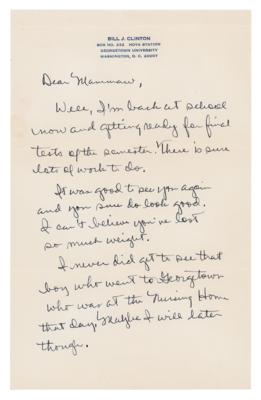 BILL J. CLINTON
BOX 232 HOYA STATION
GEORGETOWN UNIVERSITY
WASHINGTON, D. C. 20007
Dear Mammaw,
Well, I'm back at school
now and getting ready for final
tests of the semester. There is sure
lots of work to do.
It was good to see you again
and you sure do look good.
I can't believe you've lost
so much weight.
I never did get to see that
boy who went to Georgetown
who was at the Nursing Home
that day. Maybe I will later
though.